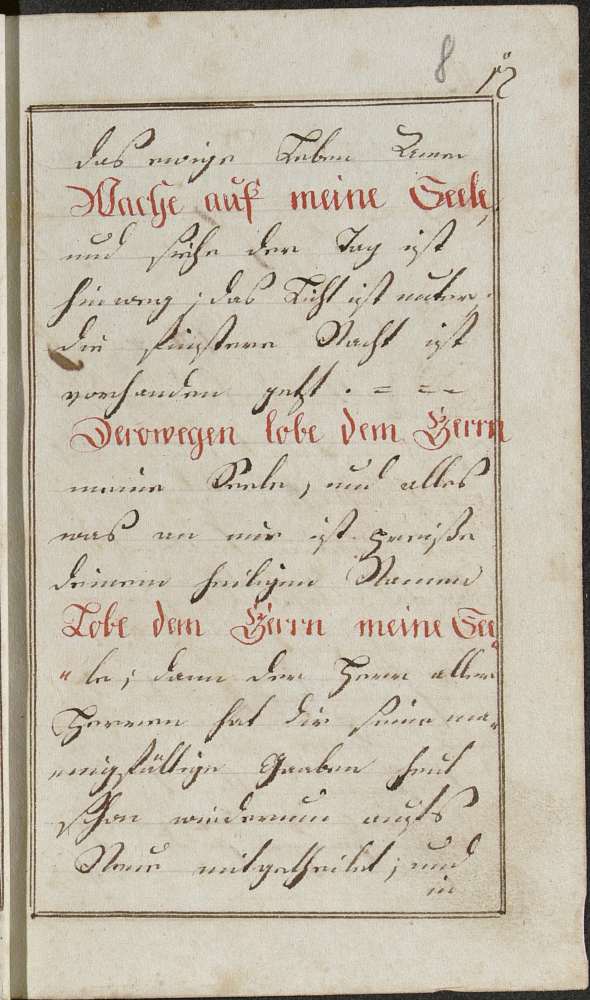 8 12
das ewige Leben Amen
Wache auf meine Seele,
und siehe der Tag ist
hinweg; das Licht ist unter,
die finstere Nacht ist
vorhanden jetzt . = = =
Derowegen lobe dem Herrn
meine Seele, und alles
was an mir ist preiße
deinem heiligen Namen
Lobe dem Herrn meine See„
„le; dann der Herr aller
Herren hat dir seine ma„
nnigfältige Gaaben heut
schon wiederum aufs
Neue mitgetheilet; und
in